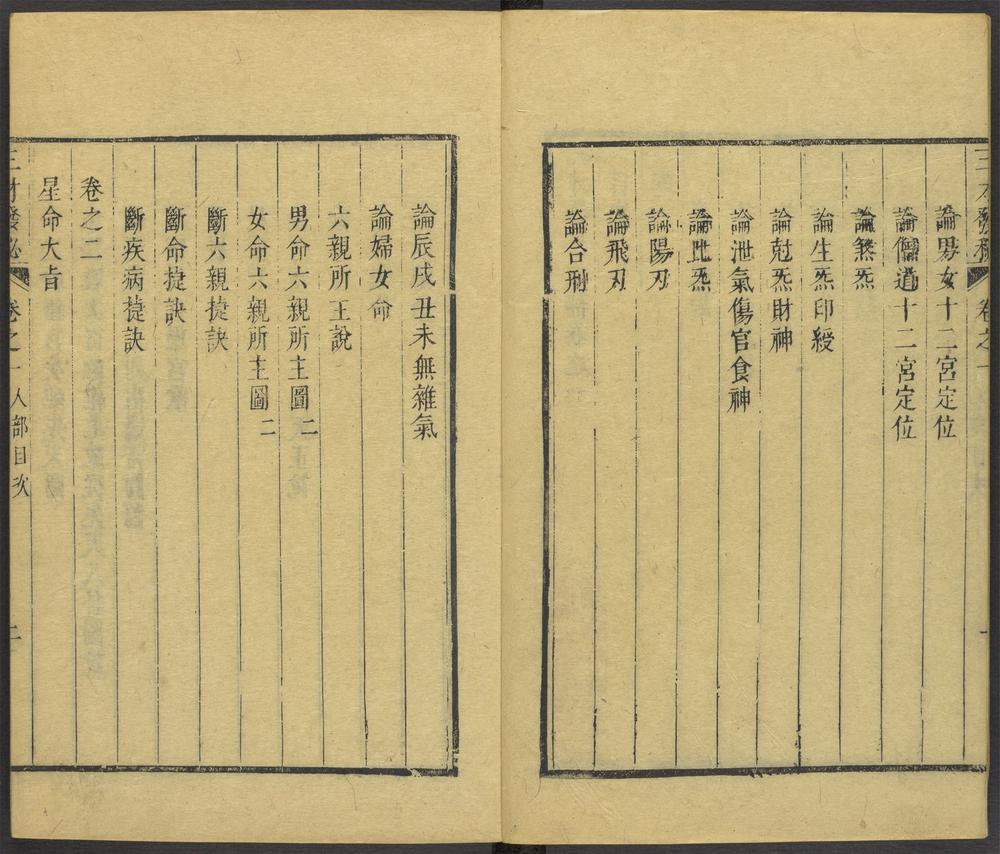 三才發秘 卷之一 一
論男女十二宮定位
論儒道十二宮定位
論煞炁
論生炁印綬
論尅炁財神
論泄氣傷官食神
論比炁
論陽刃
論飛刃
論合刑
論辰戌丑未無雜氣
論婦女命
六親所王說
男命六親所主圖二
女命六親所主圖二
斷六親捷訣
斷命捷訣
斷疾病捷訣
卷之二
星命大旨
三才發秘 卷之一 人部目次 二